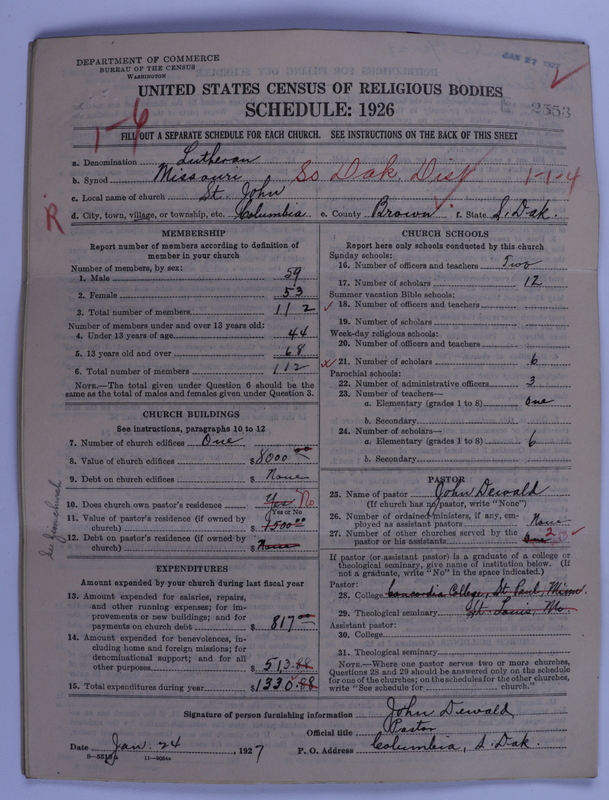 DEPARTMENT OF COMMERCE
BUREAU OF THE CENSUS
WASHINGTON
JAN 27 1927
UNITED STATES CENSUS OF RELIGIOUS BODIES
SCHEDULE: 1926
2553
1-6
FILL OUT A SEPARATE SCHEDULE FOR EACH CHURCH. SEE INSTRUCTIONS ON THE BACK OF THIS SHEET
a. Denomination Lutheran
b. Synod Missouri So Dak. Dist 1-1-4
c. Local name of church St. John
R d. City, town, village, or township, etc. Columbia e. County Brown f. State S. Dak.
MEMBERSHIP
Report number of members according to definition of
member in your church
Number of members, by sex:
1. Male 59
2. Female 53
3. Total number of members 112
Number of members under and over 13 years old:
4. Under 13 years of age 44
5. 13 years old and over 68
6. Total number of members 112
NOTE.—The total given under Question 6 should be the
same as the total of males and females given under Question 3.
CHURCH BUILDINGS
See instructions, paragraphs 10 to 12
7. Number of church edifices One
8. Value of church edifices $8000.00
9. Debt on church edifices $ None
10. Does church own pastor's residence Yes No
Yes or No
11. Value of pastor's residence (if owned by
church) $ 4500.00
12. Debt on pastor's residence (if owned by
church) $ None
EXPENDITURES
Amount expended by your church during last fiscal year
13. Amount expended for salaries, repairs,
and other running expenses; for im-
provements or new buildings; and for
payments on church debt $ 817.00
14. Amount expended for benevolences, in-
cluding home and foreign missions; for
denominational support; and for all
other purposes $ 513.88
15. Total expenditures during year $1330.88
CHURCH SCHOOLS
Report here only schools conducted by this church
Sunday schools:
16. Number of officers and teachers Two
17. Number of scholars 12
Summer vacation Bible schools:
18. Number of officers and teachers
19. Number of scholars
Week-day religious schools:
20. Number of officers and teachers
21. Number of scholars 6
Parochial schools:
22. Number of administrative officers 3
23. Number of teachers—
a. Elementary (grades 1 to 8) One
b. Secondary
24. Number of scholars—
a. Elementary (grades 1 to 8) 6
b. Secondary
PASTOR
25. Name of pastor John Dewald
(If church has no pastor, write "None")
26. Number of ordained ministers, if any, em-
ployed as assistant pastors None
27. Number of other churches served by the
pastor or his assistants 2
If pastor (or assistant pastor) is a graduate of a college or
theological seminary, give name of institution below. (If
not a graduate, write "No" in the space indicated.)
Pastor:
28. College Concordia College, St. Paul, Minn.
29. Theological seminary St. Louis, Mo.
Assistant pastor:
30. College
31. Theological seminary
NOTE.—Where one pastor serves two or more churches,
Questions 28 and 29 should be answered only on the schedule
for one of the churches; on the schedules for the other churches,
write "See schedule for church."
Signature of person furnishing information John Dewald
Official title Pastor
Date Jan. 24, 1927 P. O. Address Columbia, S. Dak.